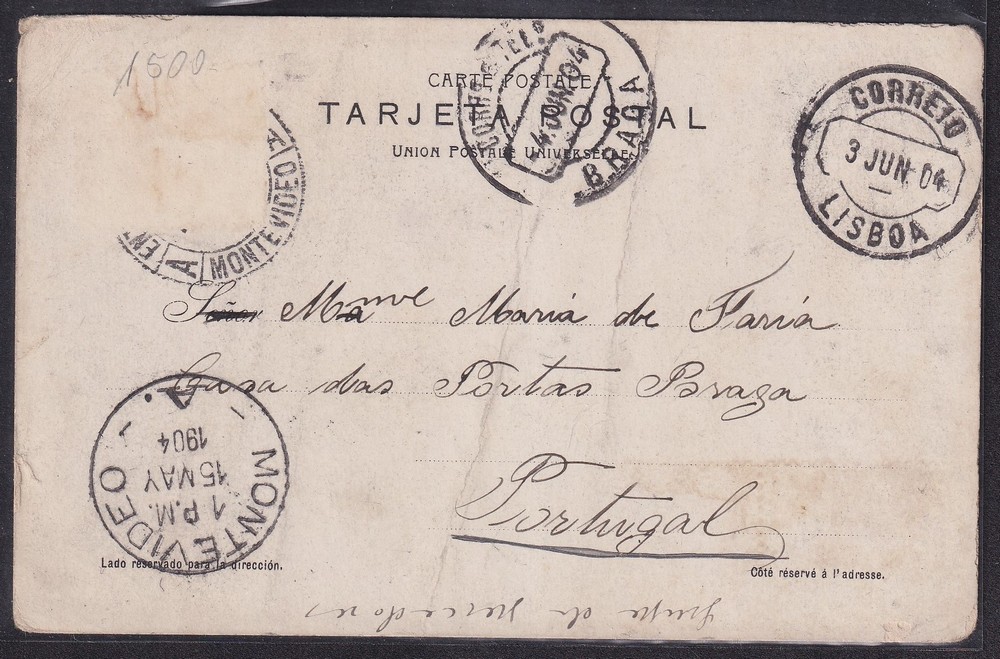 1500-
CARTE POSTALE
TARJETA POSTAL
UNION POSTALE UNIVERSELLE
4 JUN 04
BRAGA
CORREIO
3 JUN 04
LISBOA
A
MONTEVIDEO
Mme Maria de Faria
Casa das Portas Braga
Portugal
MONTEVIDEO
1 P.M.
15 MAY
1904
A
Lado reservado para la dirección.
Côté réservé á l'adresse.